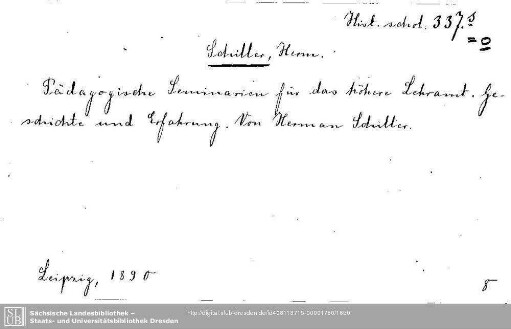 Hist. schol. 337.s
= o
Schiller, Herm.
Pädagogische Seminarien für das höhere Lehramt. Ge-
schichte und Erfahrung. Von Herman Schiller.
Leipzig, 1890
8
SLUB
Sächsische Landesbibliothek –
Staats- und Universitätsbibliothek Dresden